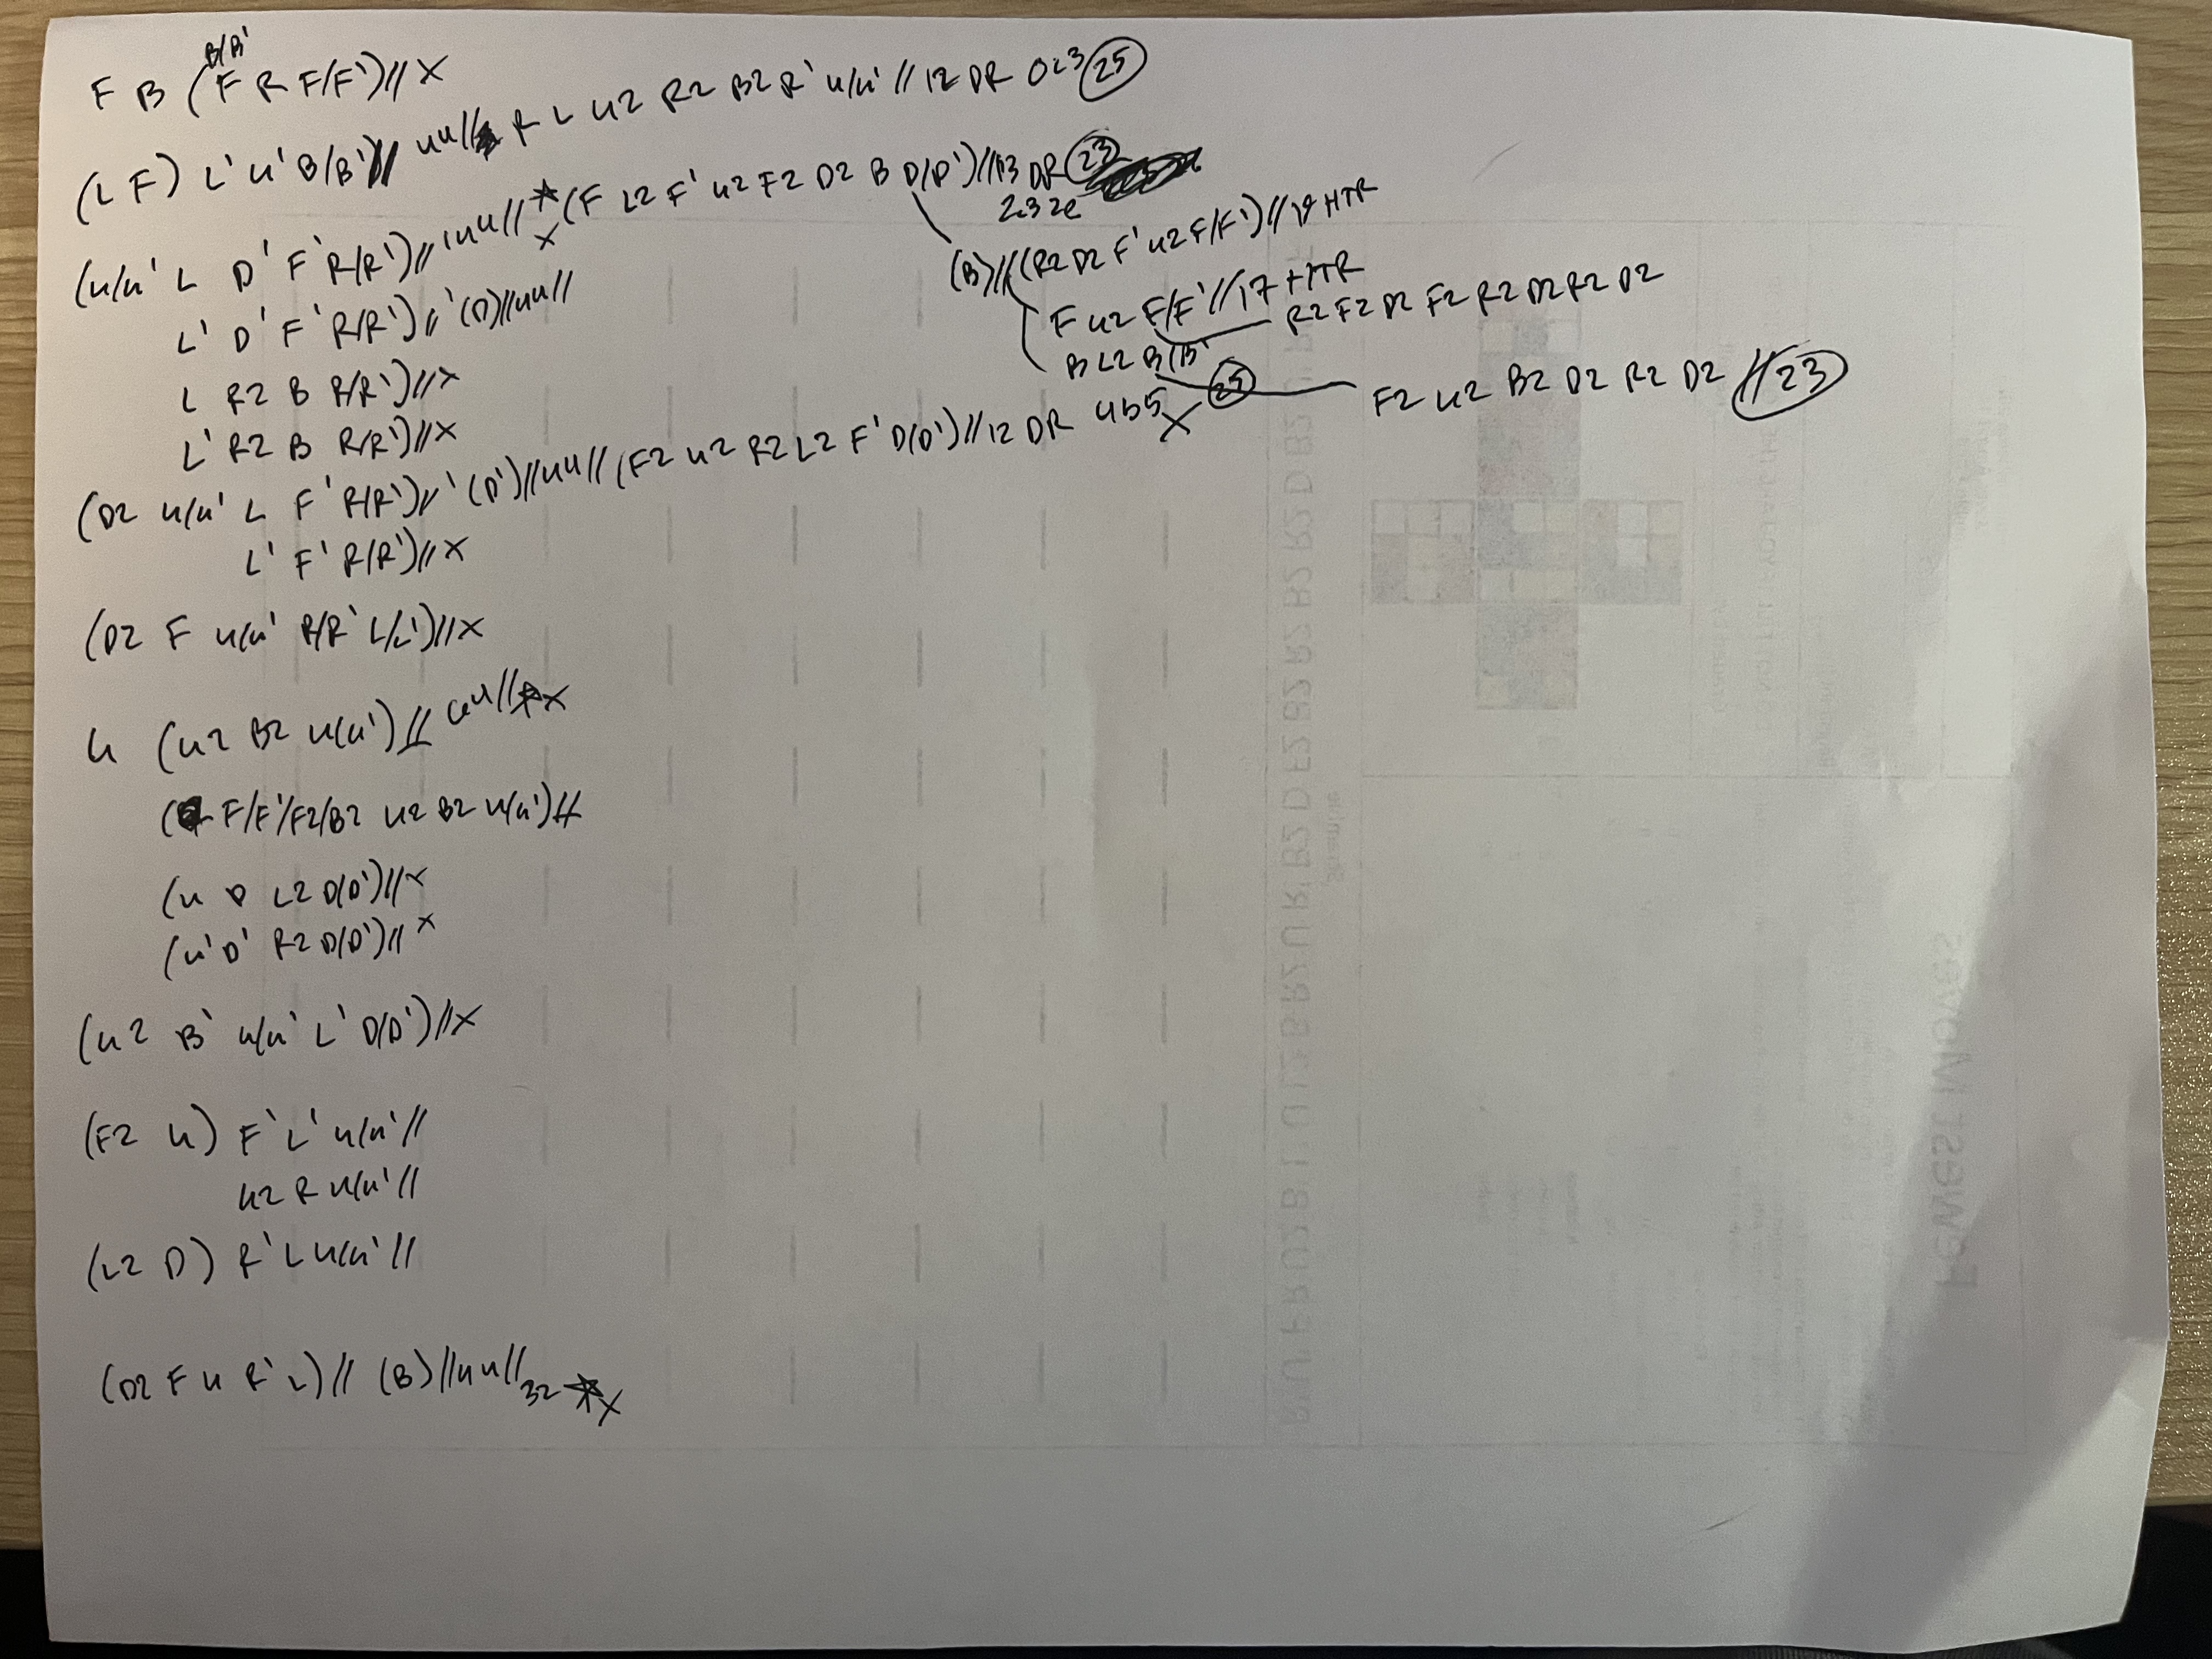 B/B'
F B (F R F/F')//X
(L F) L' u' B/B')// uu// R L u2 R2 B2 R' u/u' // 12 DR 0c3 25
(u/u' L D' F' R/R')// uu// * X (F L2 F' u2 F2 D2 B D/D')//13 DR 23
2c3 2e
(B)//(R2 D2 F' u2 F/F')//19 HTR
L' D' F' R/R')//'(D)//uu//
F u2 F/F'//17 HTR
R2 F2 D2 F2 R2 D2 R2 D2
L R2 B R/R')//X
B L2 B/B'
F2 u2 B2 D2 R2 D2 //23
L' R2 B R/R')//X
(D2 u/u' L F' R/R')//'(D')//uu//(F2 u2 R2 L2 F' D/D')//12 DR 4b5 X 25
L' F' R/R')//X
(D2 F u/u' R/R' L/L')//X
u (u2 B2 u/u')// //*X
(F/F'/F2/B2 u2 B2 u/u')//
(u D L2 D/D')//X
(u' D' R2 D/D')//X
(u2 B' u/u' L' D/D')//X
(F2 u) F' L' u/u'//
u2 R u/u'//
(L2 D) R' L u/u'//
(D2 F u R' L)// (B)//uu// 32 *X
Fewest Moves